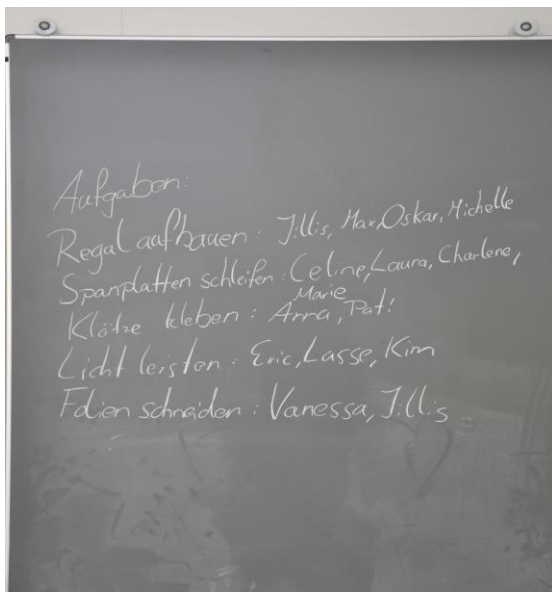 Aufgaben:
Regal aufbauen: Jillis, Max, Oskar, Michelle
Spanplatten schleifen: Celine, Laura, Charlene,
Marie
Klötze kleben: Anna, Pat!
Licht leisten: Eric, Lasse, Kim
Folien schneiden: Vanessa, Jillis